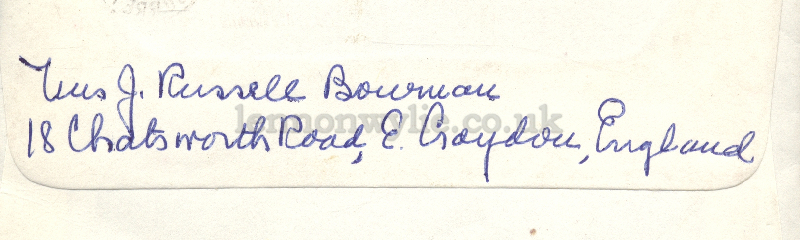 Mrs J. Russell Bowman
lennonwylie.co.uk
18 Chatsworth Road, E. Croydon, England